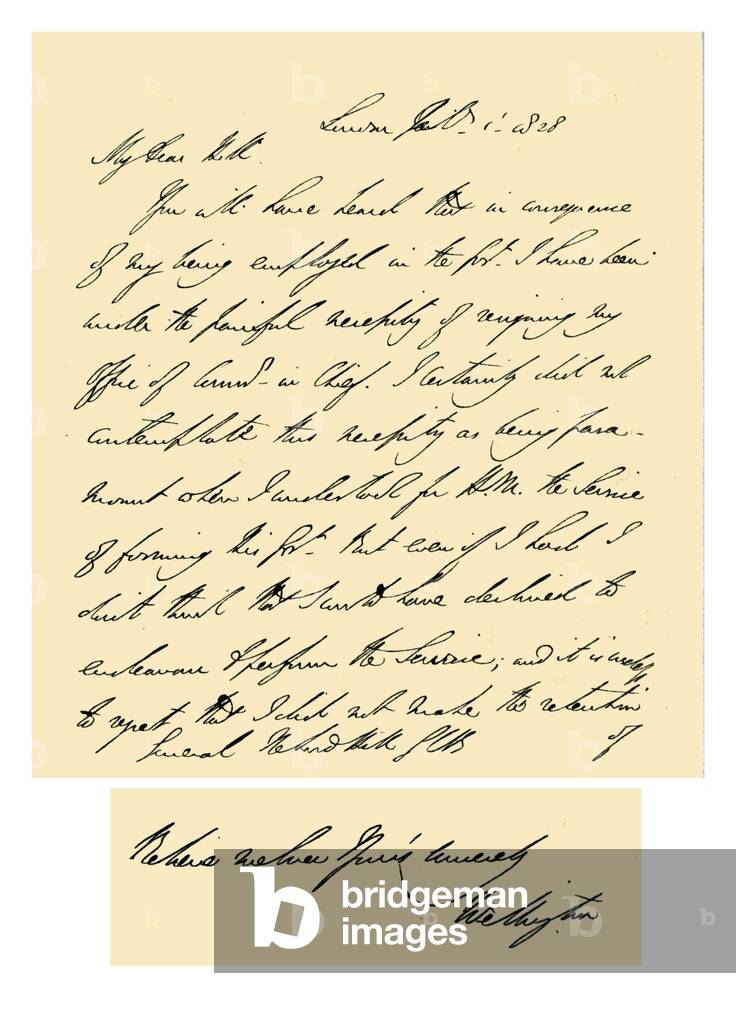 London 1828
My Dear Hill
You will have heard that in consequence
of my being employed in the Govt. I have been
under the painful necessity of resigning my
office of Commr. in Chief. I certainly did not
contemplate this necessity as being para-
mount when I undertook for H.M. the Service
of forming his Govt. But even if I had I
don't think that I could have declined to
endeavour to perform the Service; and it is useless
to repeat that I did not make the retention
of
General Rd Hill GCB
Believe me ever Yours sincerely
Wellington
bridgeman
images